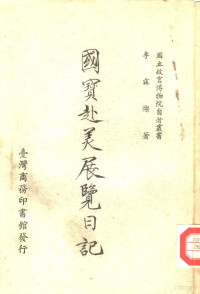 國立故宮博物院自著叢書
李霖燦 著
國寶赴美展覽日記
臺灣商務印書館發行